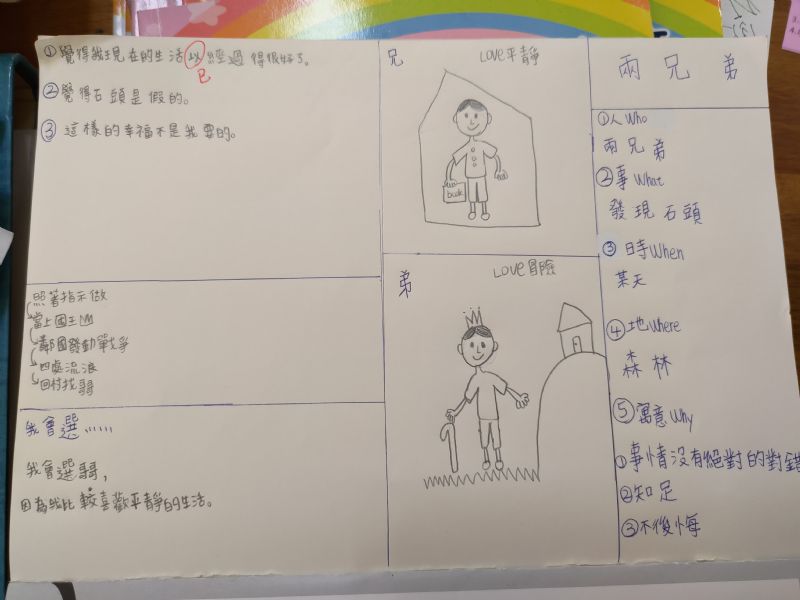 ①覺得我現在的生活以經過得很好了。
已
②覺得石頭是假的。
③這樣的幸福不是我要的。
照著指示做
當上國王
鄰國發動戰爭
四處流浪
回村找哥
我會選……
我會選哥,
因為我比較喜歡平靜的生活。
兄
LOVE平靜
book
弟
LOVE冒險
兩兄弟
①人Who
兩兄弟
②事What
發現石頭
③時When
某天
④地Where
森林
⑤寓意Why
①事情沒有絕對的對錯
②知足
③不後悔